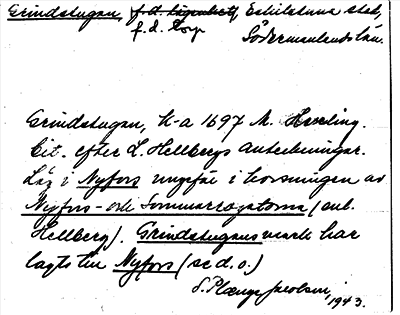 Grindstugan, f.d. lägenhet, Eskilstuna stad,
f.d. torp Södermanlands län.
Grindstugan, k-a 1697 M.
Cit. efter L. Hellbergs anteckningar.
Låg i Nyfors ungefär i korsningen av
Nyfors- och Sommarrogatorna (enl.
Hellberg). Grindstugans mark har
lagts till Nyfors (se d.o.)
S. Plænge Jacobson, 1943.